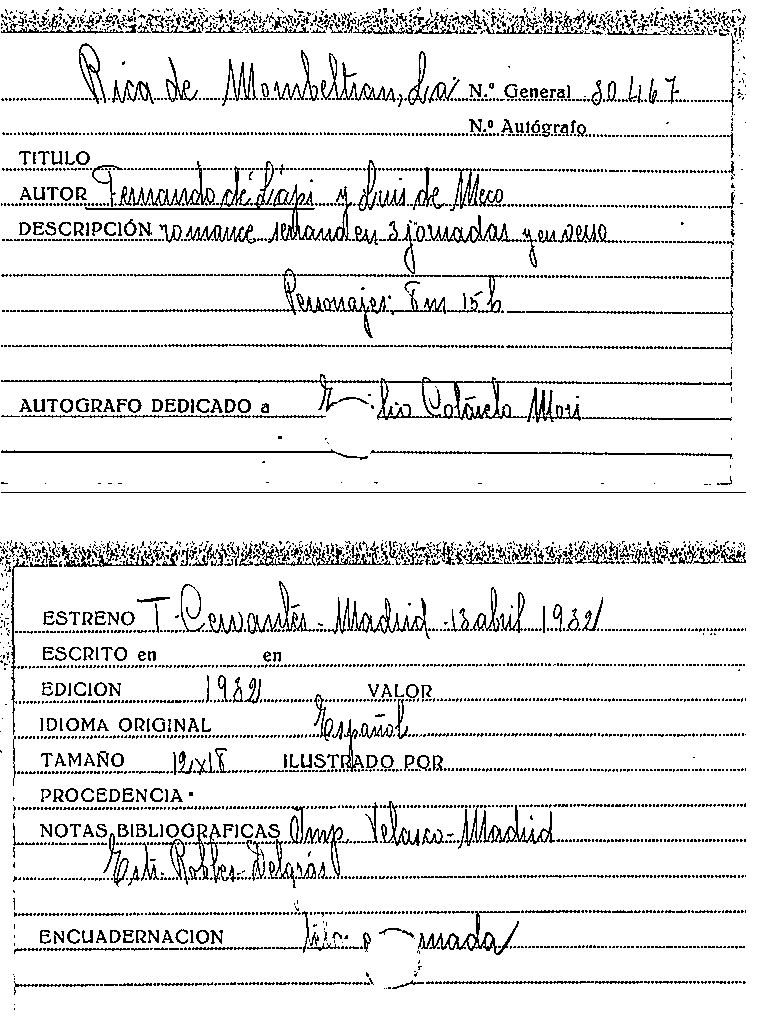 Rica de Mombeltran, La N.º General 80467
N.º Autógrafo
TITULO
AUTOR Fernando de Lapi y Luis de Meco
DESCRIPCIÓN romance serrano en 3 jornadas y en verso
Personajes: 8m 15h
AUTOGRAFO DEDICADO a Emilio Cotarelo Mori
ESTRENO T. Cervantes - Madrid - 13 abril 1932
ESCRITO en en
EDICION 1932 VALOR
IDIOMA ORIGINAL Español
TAMAÑO 12x18 ILUSTRADO POR
PROCEDENCIA
NOTAS BIBLIOGRAFICAS Imp. Velasco - Madrid
Robles
ENCUADERNACION